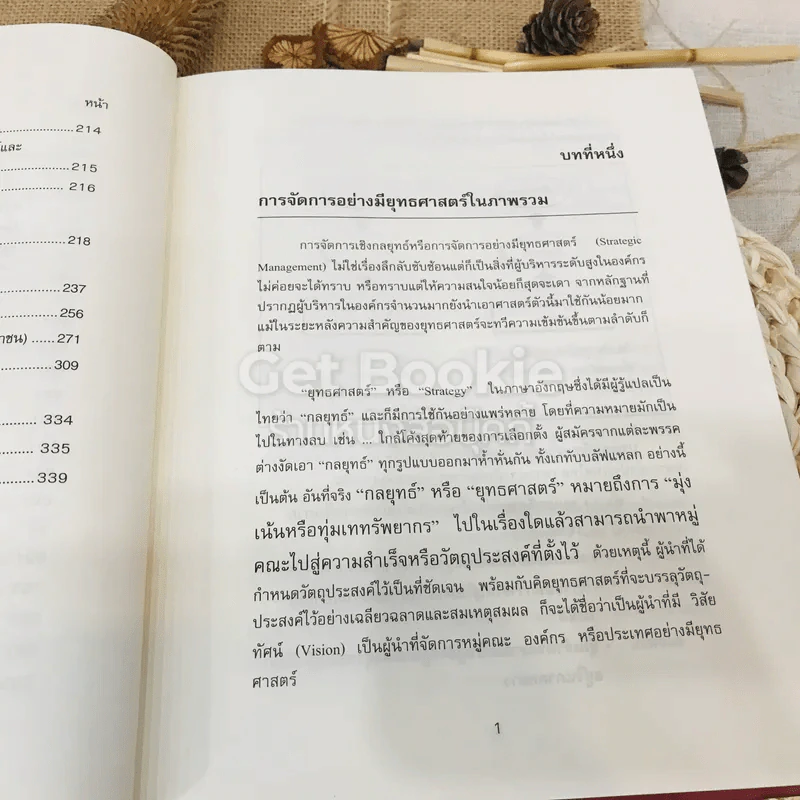 หน้า
214
และ
215
216
218
237
256
าชน) ......271
309
334
335
339
บทที่หนึ่ง
การจัดการอย่างมียุทธศาสตร์ในภาพรวม
การจัดการเชิงกลยุทธ์หรือการจัดการอย่างมียุทธศาสตร์ (Strategic
Management) ไม่ใช่เรื่องลึกลับซับซ้อนแต่ก็เป็นสิ่งที่ผู้บริหารระดับสูงในองค์กร
ไม่ค่อยจะได้ทราบ หรือทราบแต่ให้ความสนใจน้อยก็สุดจะเดา จากหลักฐานที่
ปรากฏผู้บริหารในองค์กรจำนวนมากยังนำเอาศาสตร์ตัวนี้มาใช้กันน้อยมาก
แม้ในระยะหลังความสำคัญของยุทธศาสตร์จะทวีความเข้มข้นขึ้นตามลำดับก็
ตาม
Get Bookie
"ยุทธศาสตร์" หรือ "Strategy" ในภาษาอังกฤษซึ่งได้มีผู้รู้แปลเป็น
ไทยว่า "กลยุทธ์" และก็มีการใช้กันอย่างแพร่หลาย โดยที่ความหมายมักเป็น
ไปในทางลบ เช่น ... ใกล้โค้งสุดท้ายของการเลือกตั้ง ผู้สมัครจากแต่ละพรรค
ต่างงัดเอา "กลยุทธ์" ทุกรูปแบบออกมาห้ำหั่นกัน ทั้งเกทับบลัฟแหลก อย่างนี้
เป็นต้น อันที่จริง "กลยุทธ์" หรือ "ยุทธศาสตร์" หมายถึงการ "มุ่ง
เน้นหรือทุ่มเททรัพยากร" ไปในเรื่องใดแล้วสามารถนำพาหมู่
คณะไปสู่ความสำเร็จหรือวัตถุประสงค์ที่ตั้งไว้ ด้วยเหตุนี้ ผู้นำที่ได้
กำหนดวัตถุประสงค์ไว้เป็นที่ชัดเจน พร้อมกับคิดยุทธศาสตร์ที่จะบรรลุวัตถุ-
ประสงค์ไว้อย่างเฉลียวฉลาดและสมเหตุสมผล ก็จะได้ชื่อว่าเป็นผู้นำที่มี วิสัย
ทัศน์ (Vision) เป็นผู้นำที่จัดการหมู่คณะ องค์กร หรือประเทศอย่างมียุทธ
ศาสตร์
1